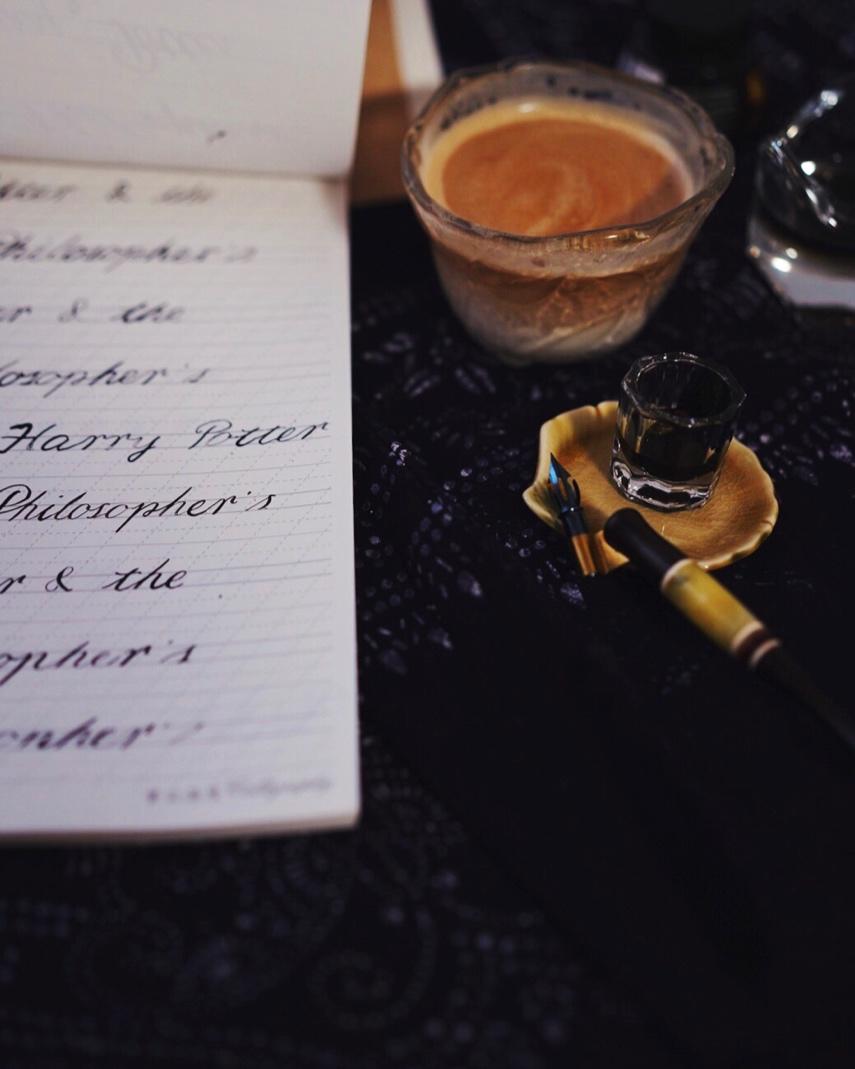 & the
Philosopher's
er & the
losopher's
Harry Potter
Philosopher's
r & the
opher's
opher's
Calligraphy